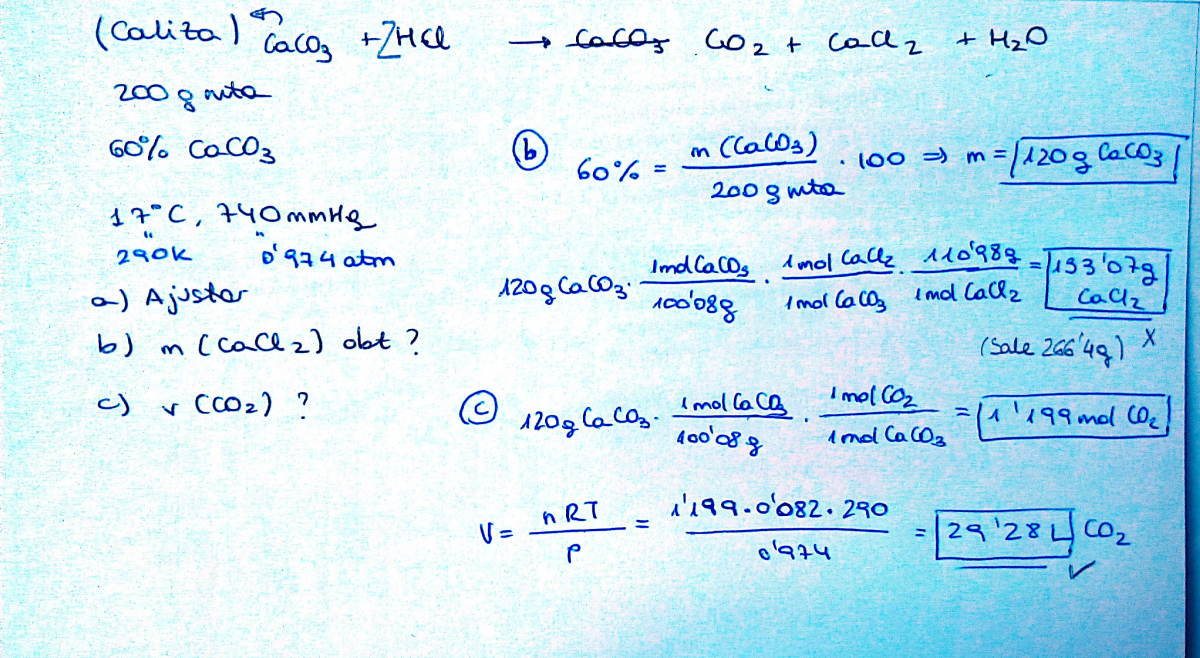 (Caliza) CaCO₃ + 2HCl → ~~CaCO₃~~ CO₂ + CaCl₂ + H₂O
200 g mta
60% CaCO₃
17°C, 740 mmHg
290K 0'974 atm
a) Ajustar
b) m (CaCl₂) obt ?
c) v (CO₂) ?
(b) 60% = m (CaCO₃) / 200 g mta · 100 ⇒ m = 120 g CaCO₃
120 g CaCO₃ · 1 mol CaCO₃ / 100'08 g · 1 mol CaCl₂ / 1 mol CaCO₃ · 110'98 g / 1 mol CaCl₂ = 133'07 g CaCl₂
(Sale 266'4g) X
(c) 120 g CaCO₃ · 1 mol CaCO₃ / 100'08 g · 1 mol CO₂ / 1 mol CaCO₃ = 1'199 mol CO₂
V = nRT / P = 1'199 · 0'082 · 290 / 0'974 = 29'28 L CO₂ ✓